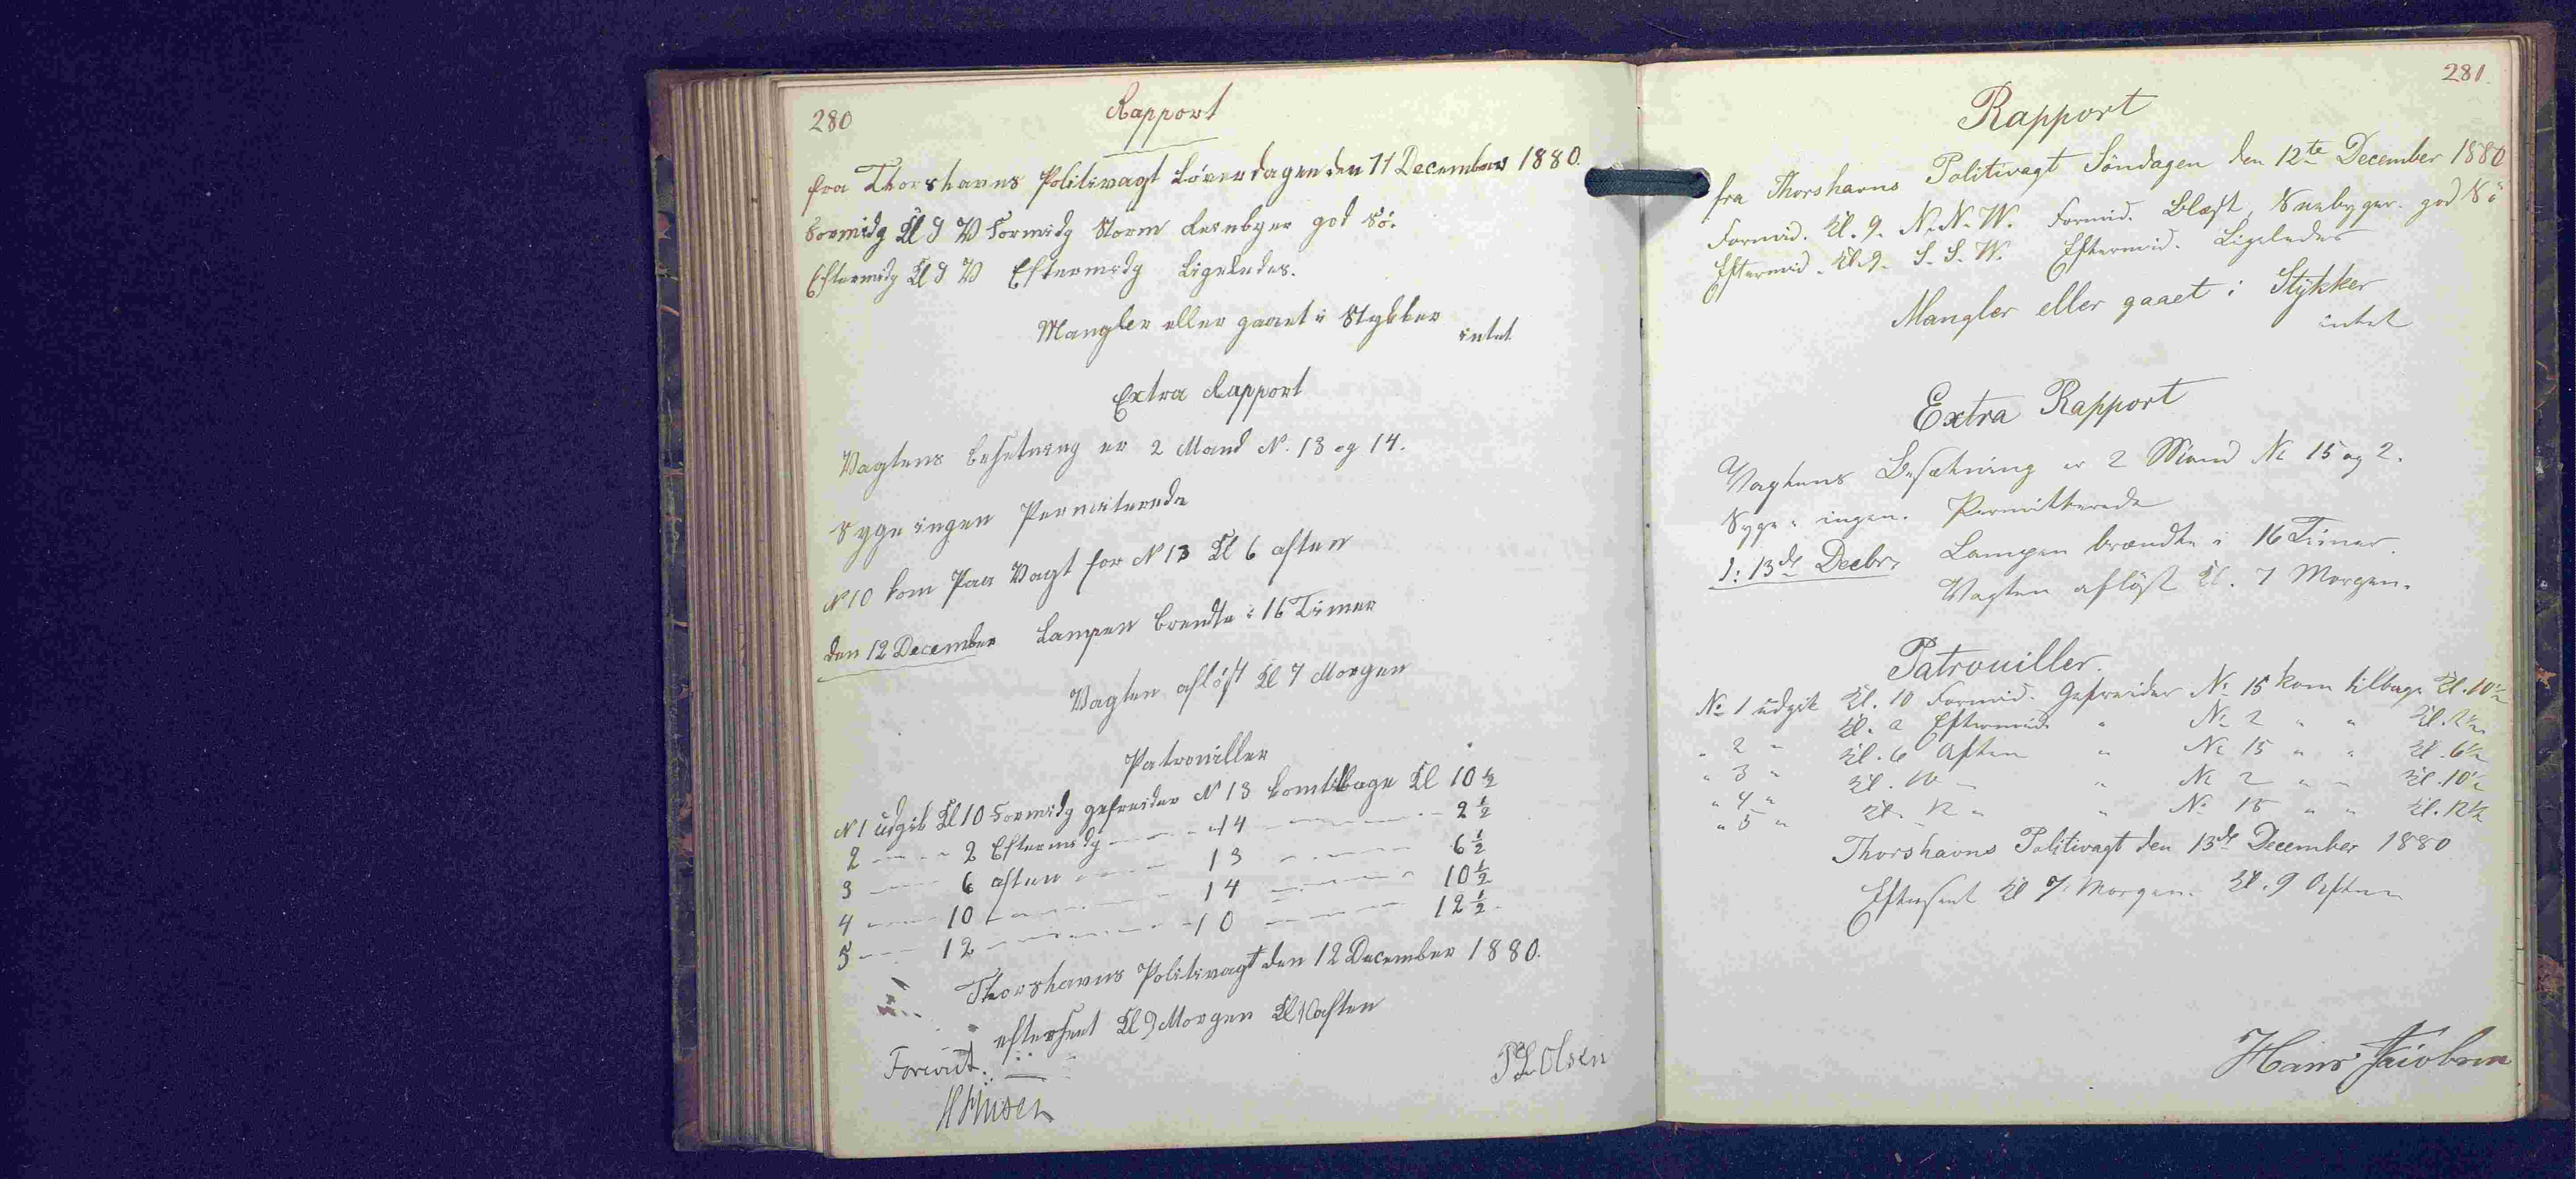 280
Rapport
fra Thorshavns Politivagt Løverdagen den 11 December 1880.
Formidg Kl 9 V Formidg Storm Reinbyer god Sö.
Eftermidg Kl 9 V Eftermidg Ligeledes.
Mangler eller gaaet i Stykker
intet
Extra Rapport
Vagtens besetning er 2 Mand N. 13 og 14.
Syge ingen Permiterede
N 10 kom Paa Vagt for N 13 Kl 6 aften
den 12 December Lampen brendte i 16 Timer
Vagten afløst Kl 7 Morgen
Patrouiller
N 1 udgik Kl 10 Formidg gefreider N 13 kom tilbage Kl 10 ½
2 - - - 2 Eftermidg - - - 14 - - - 2 ½
3 - - - 6 aften - - - 13 - - - 6 ½
4 - - - 10 - - - 14 - - - 10 ½
5 - - - 12 - - - 10 - - - 12 ½.
Thorshavns Politivagt den 12 December 1880.
efterseet Kl 9 Morgen Kl aften
P L Olsen
281.
Rapport
fra Thorshavns Politivagt Söndagen den 12te December 1880
Formid. Kl. 9. N.N.W. Formid. Blæst, Sneebyger. god Sö
Eftermid. Kl. 9. S.S.W. Eftermid. Ligeledes
Mangler eller gaaet i Stykker
intet
Extra Rapport
Vagtens Besætning er 2 Mand No 15 og 2.
Syge: ingen. Permitterede
d: 13de Decbr. Lampen brændte i 16 Timer.
Vagten aflöst Kl. 7 Morgen.
Patrouiller.
No 1 udgik Kl. 10 Formid. Gefreider No 15 kom tilbage Kl. 10½
" 2 " Kl. 2 Eftermid. " No 2 " " Kl. 2½
" 3 " Kl. 6 Aften " No 15 " " Kl. 6½
" 4 " Kl. 10 " " No 2 " " Kl. 10½
" 5 " Kl. 12 " " No 15 " " Kl. 12½
Thorshavns Politivagt den 13de December 1880
Efterseet Kl 7 Morgen. Kl. 9 Aften
Hans Jacobsen